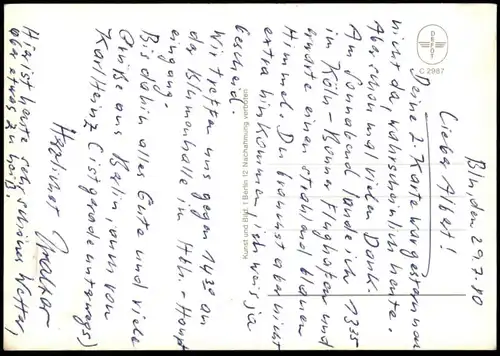 Bln, den 29.7.80
Lieber Albert!
Deine 2. Karte war gestern noch
nicht da, wahrscheinlich heute.
Aber schon mal vielen Dank.
Am Sonnabend lande ich 1335
im Köln-Bonner Flughafen und
erwarte einen strahlend blauen
Himmel. Du brauchst aber nicht
extra hinkommen, ich weis ja
bescheid.
Wir treffen uns gegen 1430 an
der Blumenhalle im Hbh.-Haupt
eingang.
Bis dahin alles Gute und viele
Grüße aus Berlin, auch von
Karl Heinz (ist gerade unterwegs)
Herzlichst
Hier ist heute sehr schönes Wetter,
aber etwas zu heiß.
Kunst und Bild 1 Berlin 12 Nachzeichnung verboten
C 2987